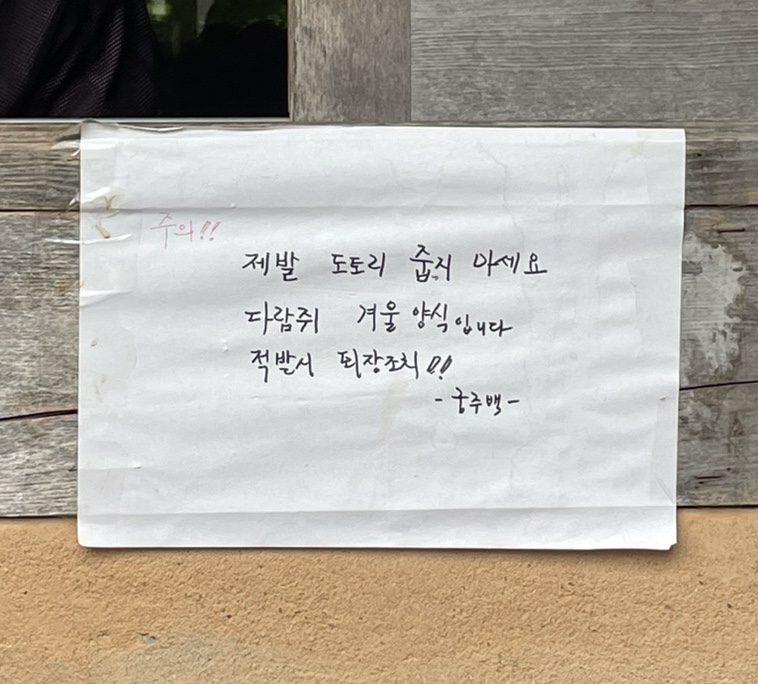 주의!!
제발 도토리 줍지 마세요
다람쥐 겨울 양식입니다
적발시 퇴장조치!!
-궁주백-